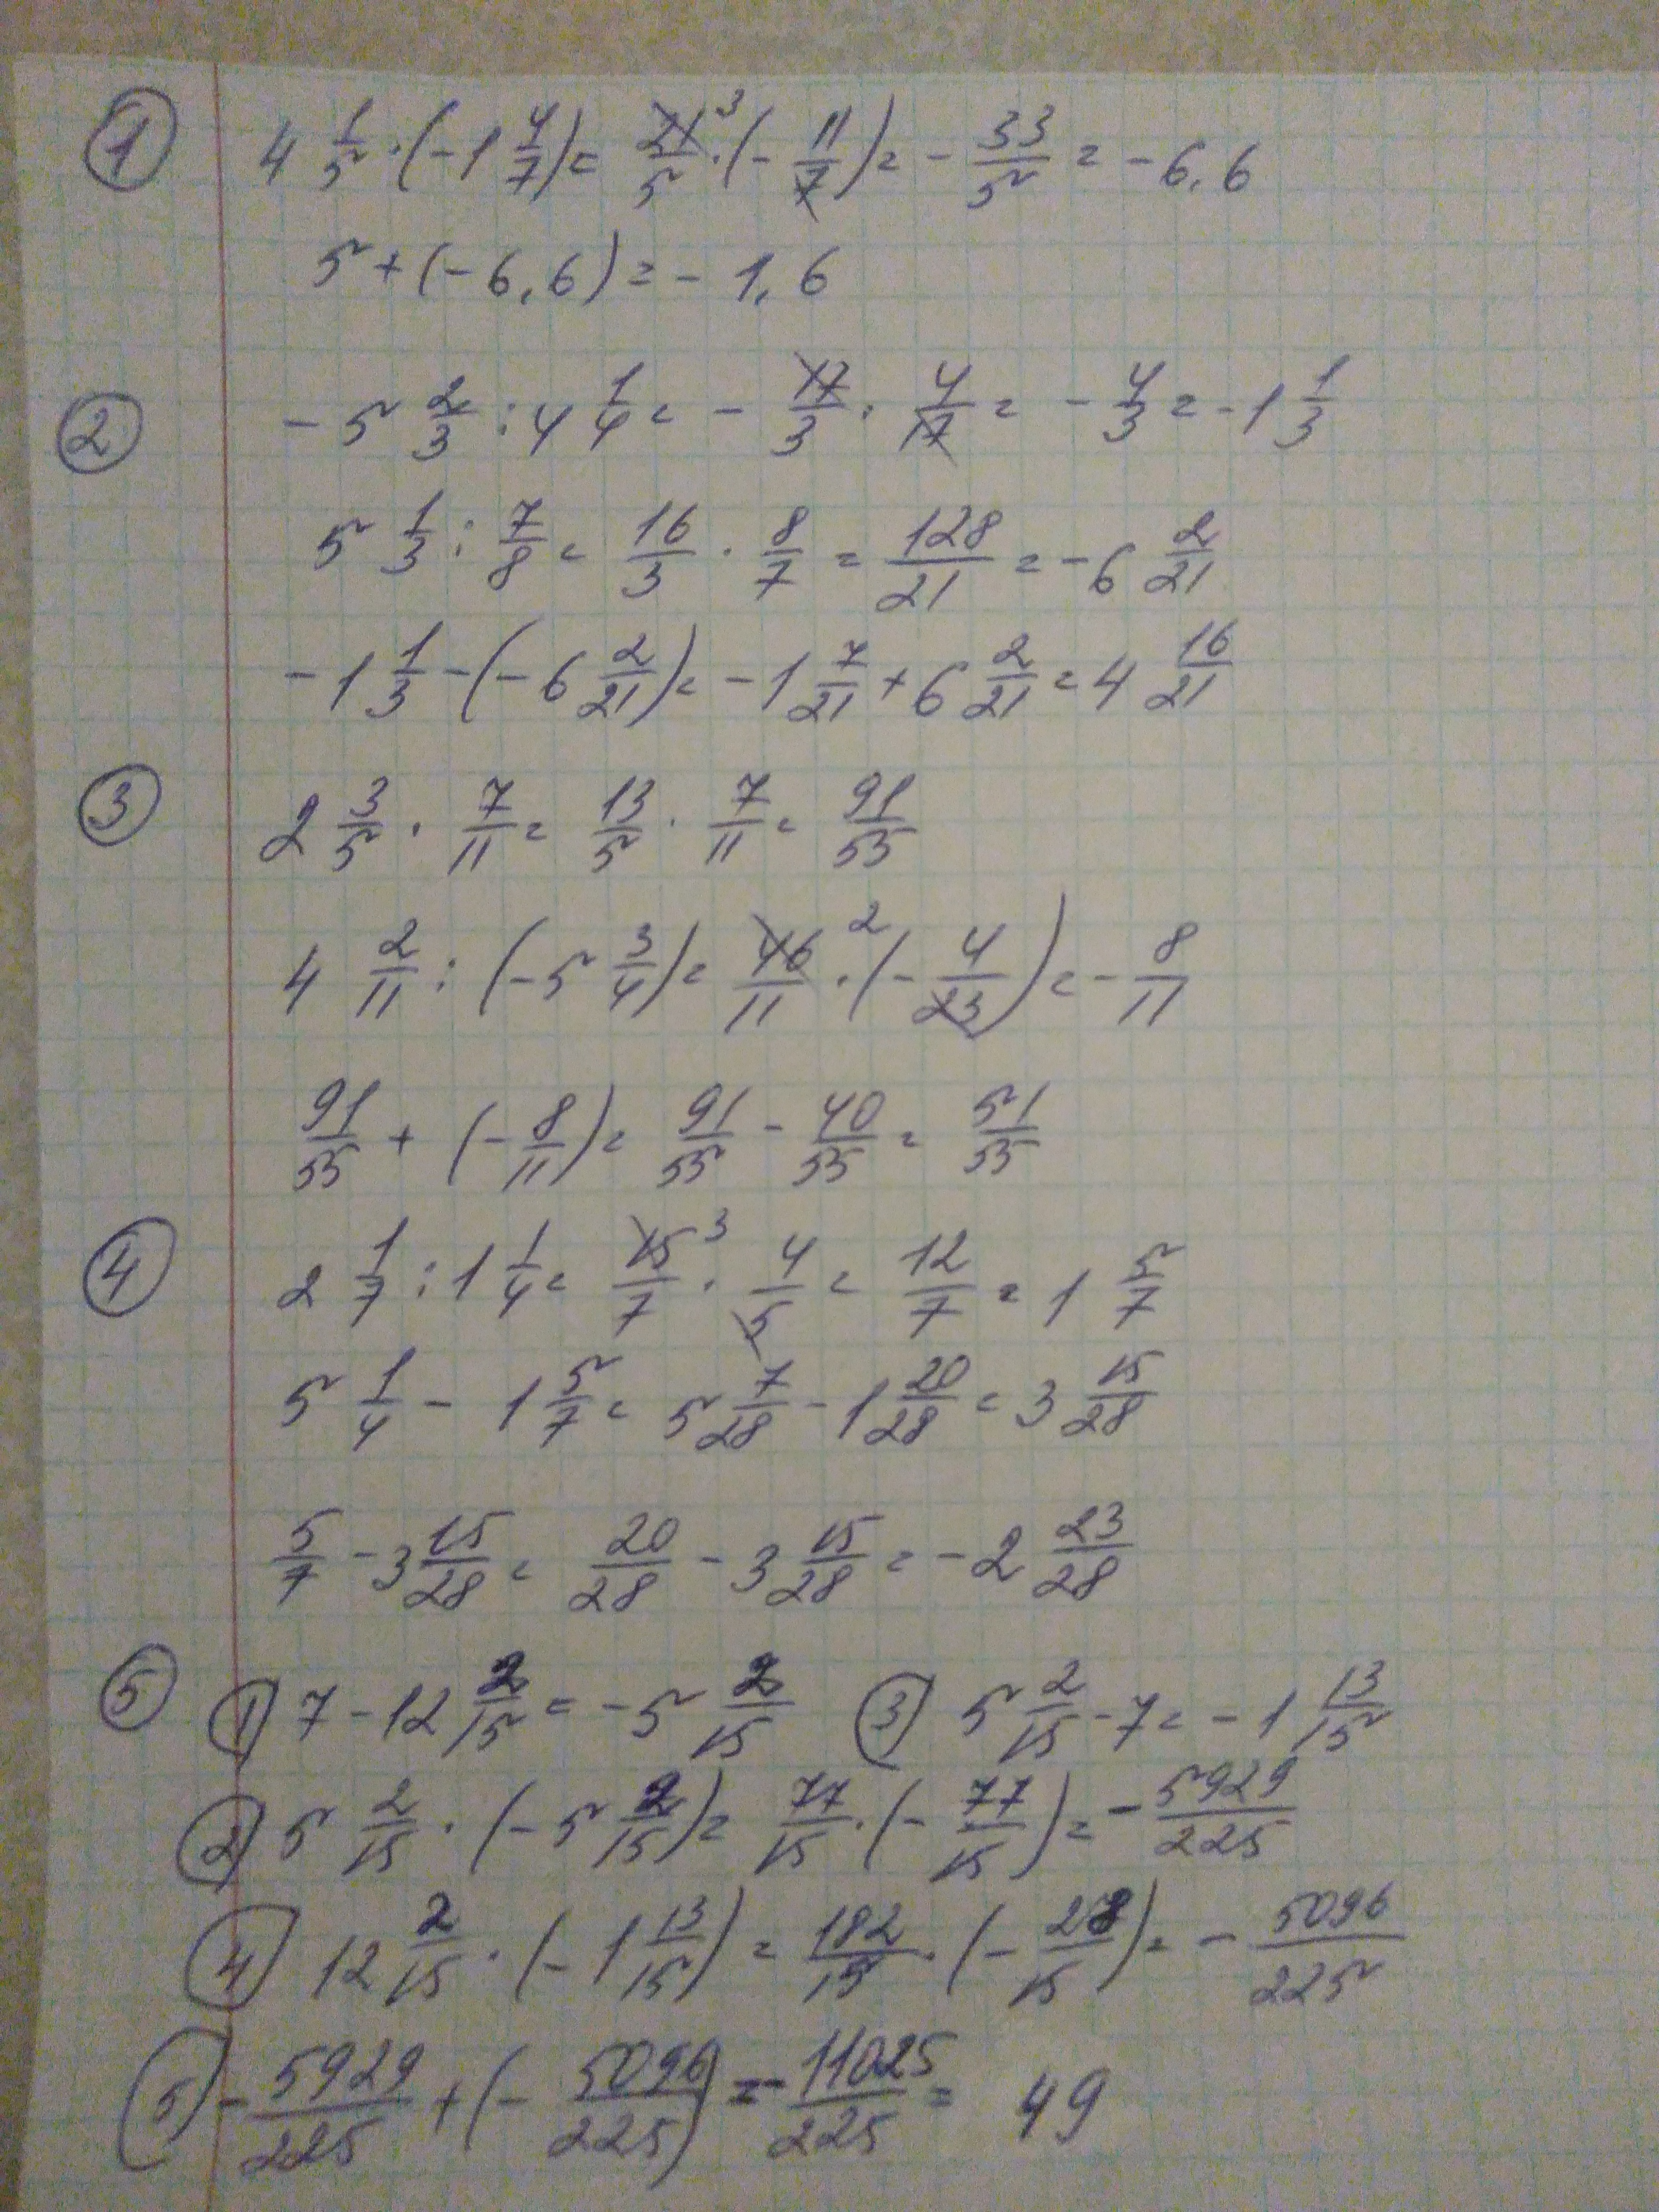 ① 4 1/5 · (-1 4/7) = 21/5 ³ · (- 11/7) = - 33/5 = - 6,6
5 + (- 6,6) = - 1,6
② - 5 2/3 : 4 1/4 = - 17/3 · 4/17 = - 4/3 = - 1 1/3
5 1/3 : 7/8 = 16/3 · 8/7 = 128/21 = - 6 2/21
- 1 1/3 - (- 6 2/21) = - 1 7/21 + 6 2/21 = 4 16/21
③ 2 3/5 · 7/11 = 13/5 · 7/11 = 91/55
4 2/11 : (- 5 3/4) = 46/11 ² · (- 4/23) = - 8/11
91/55 + (- 8/11) = 91/55 - 40/55 = 51/55
④ 2 1/7 : 1 1/4 = 15/7 ³ · 4/5 = 12/7 = 1 5/7
5 1/4 - 1 5/7 = 5 7/28 - 1 20/28 = 3 15/28
5/7 - 3 15/28 = 20/28 - 3 15/28 = - 2 23/28
⑤ ① 7 - 12 2/15 = - 5 2/15 ③ 5 2/15 - 7 = - 1 13/15
② 5 2/15 · (- 5 2/15) = 77/15 · (- 77/15) = - 5929/225
④ 12 2/15 · (- 1 13/15) = 182/15 · (- 28/15) = - 5096/225
⑤ - 5929/225 + (- 5096/225) = - 11025/225 = 49